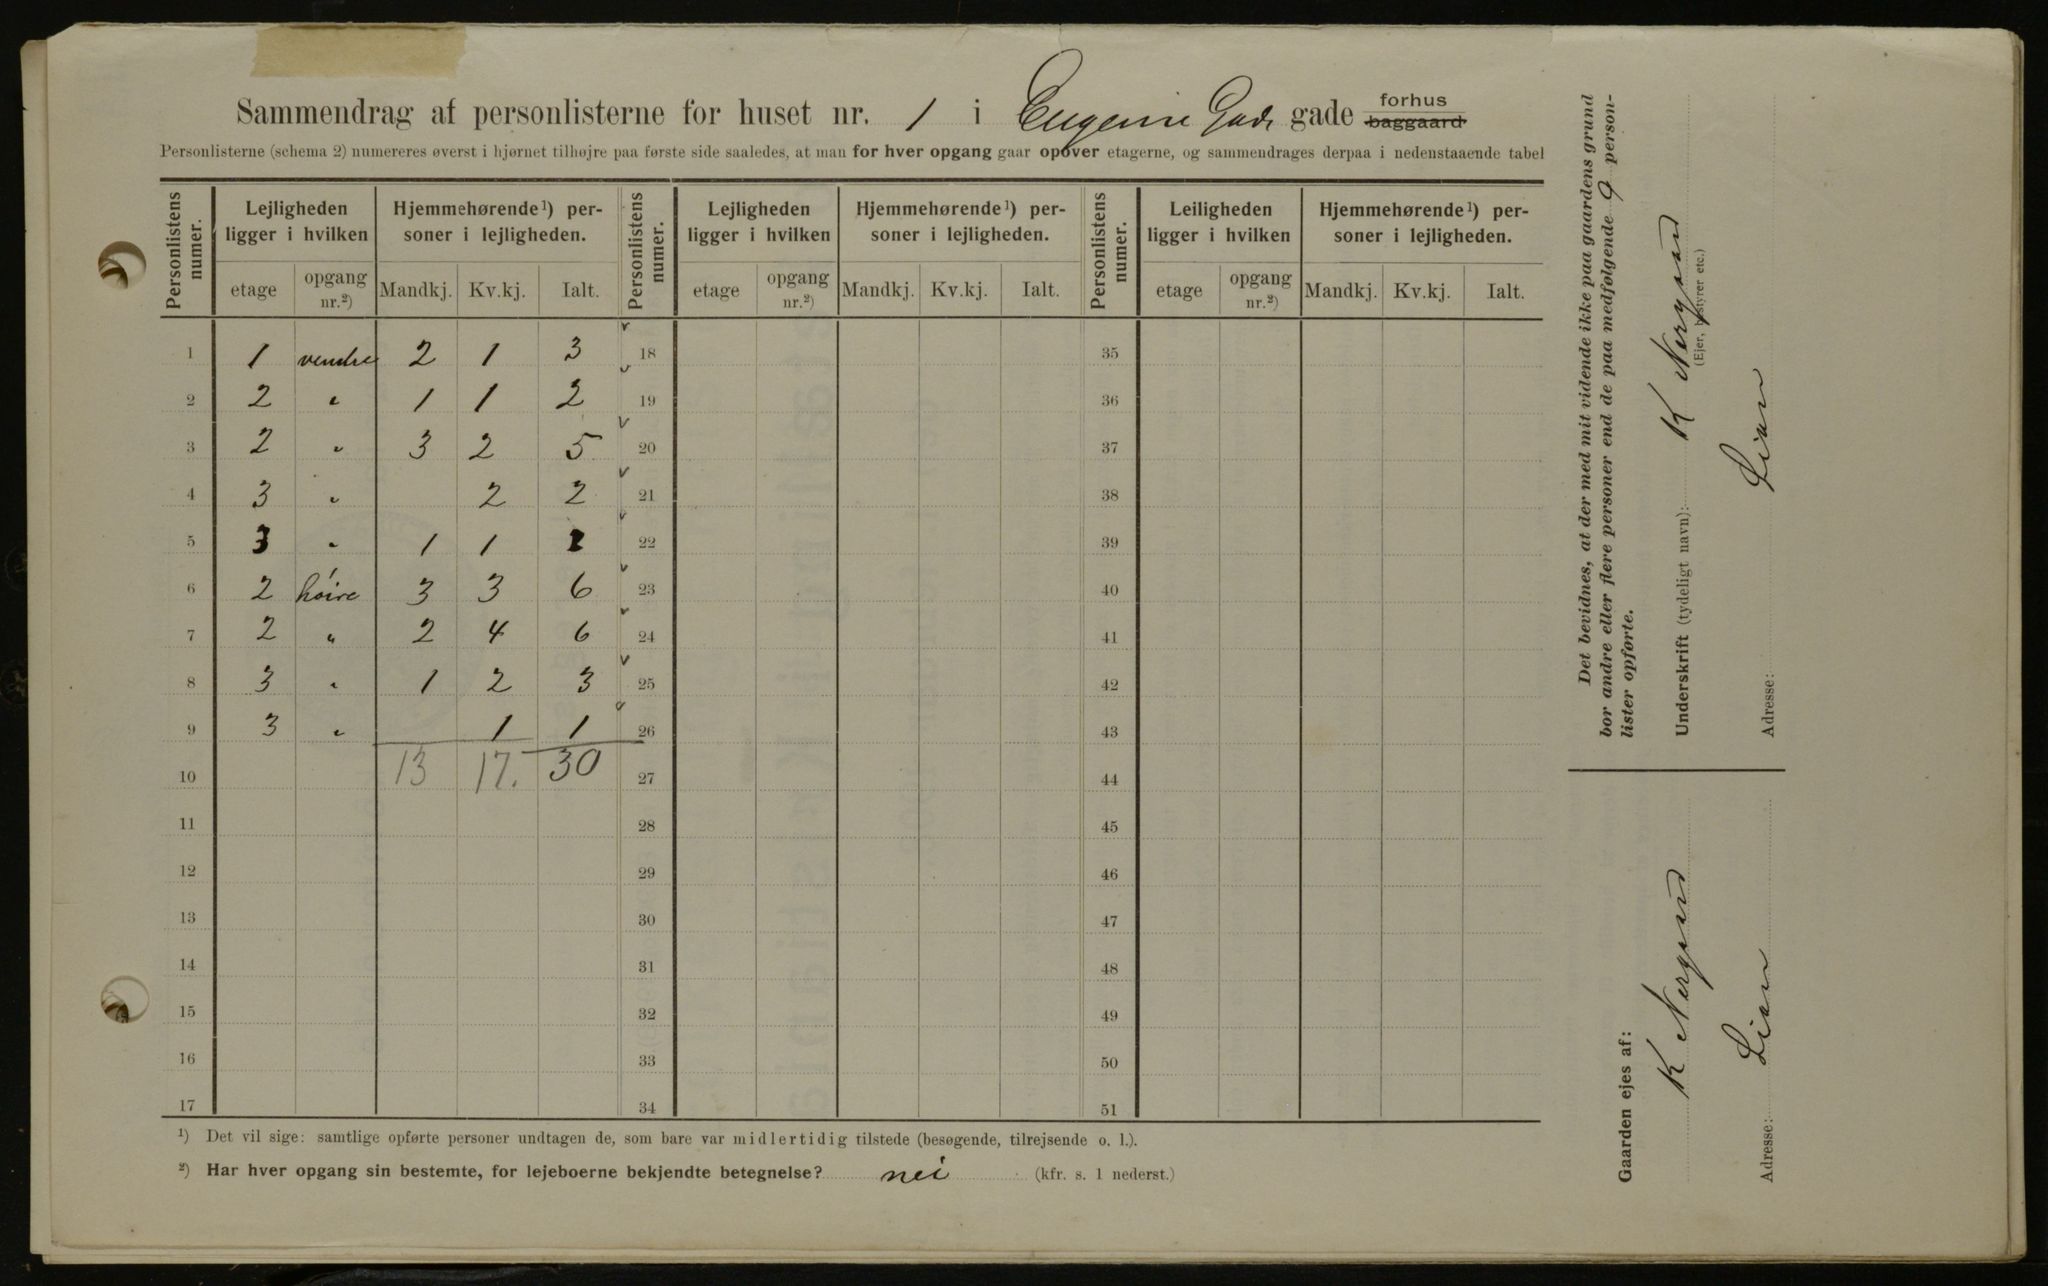 Sammendrag af personlisterne for huset nr. 1 i Eugenie Gade gade forhus baggaard
Personlisterne (schema 2) numereres øverst i hjørnet tilhøjre paa første side saaledes, at man for hver opgang gaar opover etagerne, og sammendrages derpaa i nedenstaaende tabel
Personlistens numer. Lejligheden ligger i hvilken Hjemmehørende ¹) personer i lejligheden. Personlistens numer. Lejligheden ligger i hvilken Hjemmehørende ¹) personer i lejligheden. Personlistens numer. Leiligheden ligger i hvilken Hjemmehørende ¹) personer i lejligheden.
etage opgang nr.²) Mandkj. Kv.kj. Ialt. etage opgang nr.²) Mandkj. Kv.kj. Ialt. etage opgang nr.²) Mandkj. Kv.kj. Ialt.
1 1 vendre 2 1 3 18 35
2 2 " 1 1 2 19 36
3 2 " 3 2 5 20 37
4 3 " 2 2 21 38
5 3 " 1 1 2 22 39
6 2 høire 3 3 6 23 40
7 2 " 2 4 6 24 41
8 3 " 1 2 3 25 42
9 3 " 1 1 26 43
10 13 17. 30 27 44
11 28 45
12 29 46
13 30 47
14 31 48
15 32 49
16 33 50
17 34 51
¹) Det vil sige: samtlige opførte personer undtagen de, som bare var midlertidig tilstede (besøgende, tilrejsende o. l.).
²) Har hver opgang sin bestemte, for lejeboerne bekjendte betegnelse? nei (kfr. s. 1 nederst.)
Det bevidnes, at der med mit vidende ikke paa gaardens grund
bor andre eller flere personer end de paa medfølgende 9 person-
lister opførte.
Underskrift (tydeligt navn): K Nergard
(Ejer, bestyrer etc.)
Adresse: Lien
Gaarden ejes af: K Nergard
Adresse: Lien